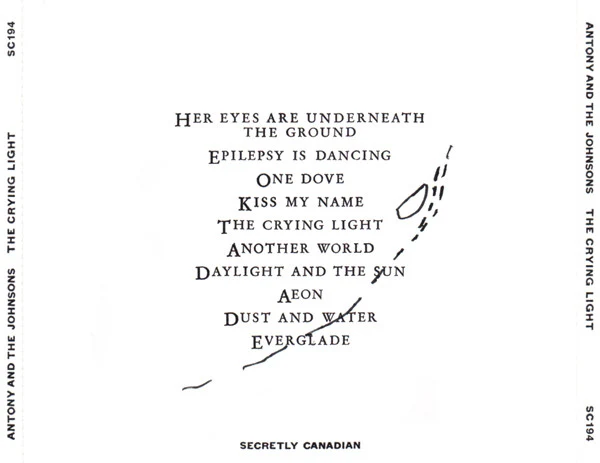 SC194
THE CRYING LIGHT
ANTONY AND THE JOHNSONS
HER EYES ARE UNDERNEATH
THE GROUND
EPILEPSY IS DANCING
ONE DOVE
KISS MY NAME
THE CRYING LIGHT
ANOTHER WORLD
DAYLIGHT AND THE SUN
AEON
DUST AND WATER
EVERGLADE
SECRETLY CANADIAN
ANTONY AND THE JOHNSONS
THE CRYING LIGHT
SC194